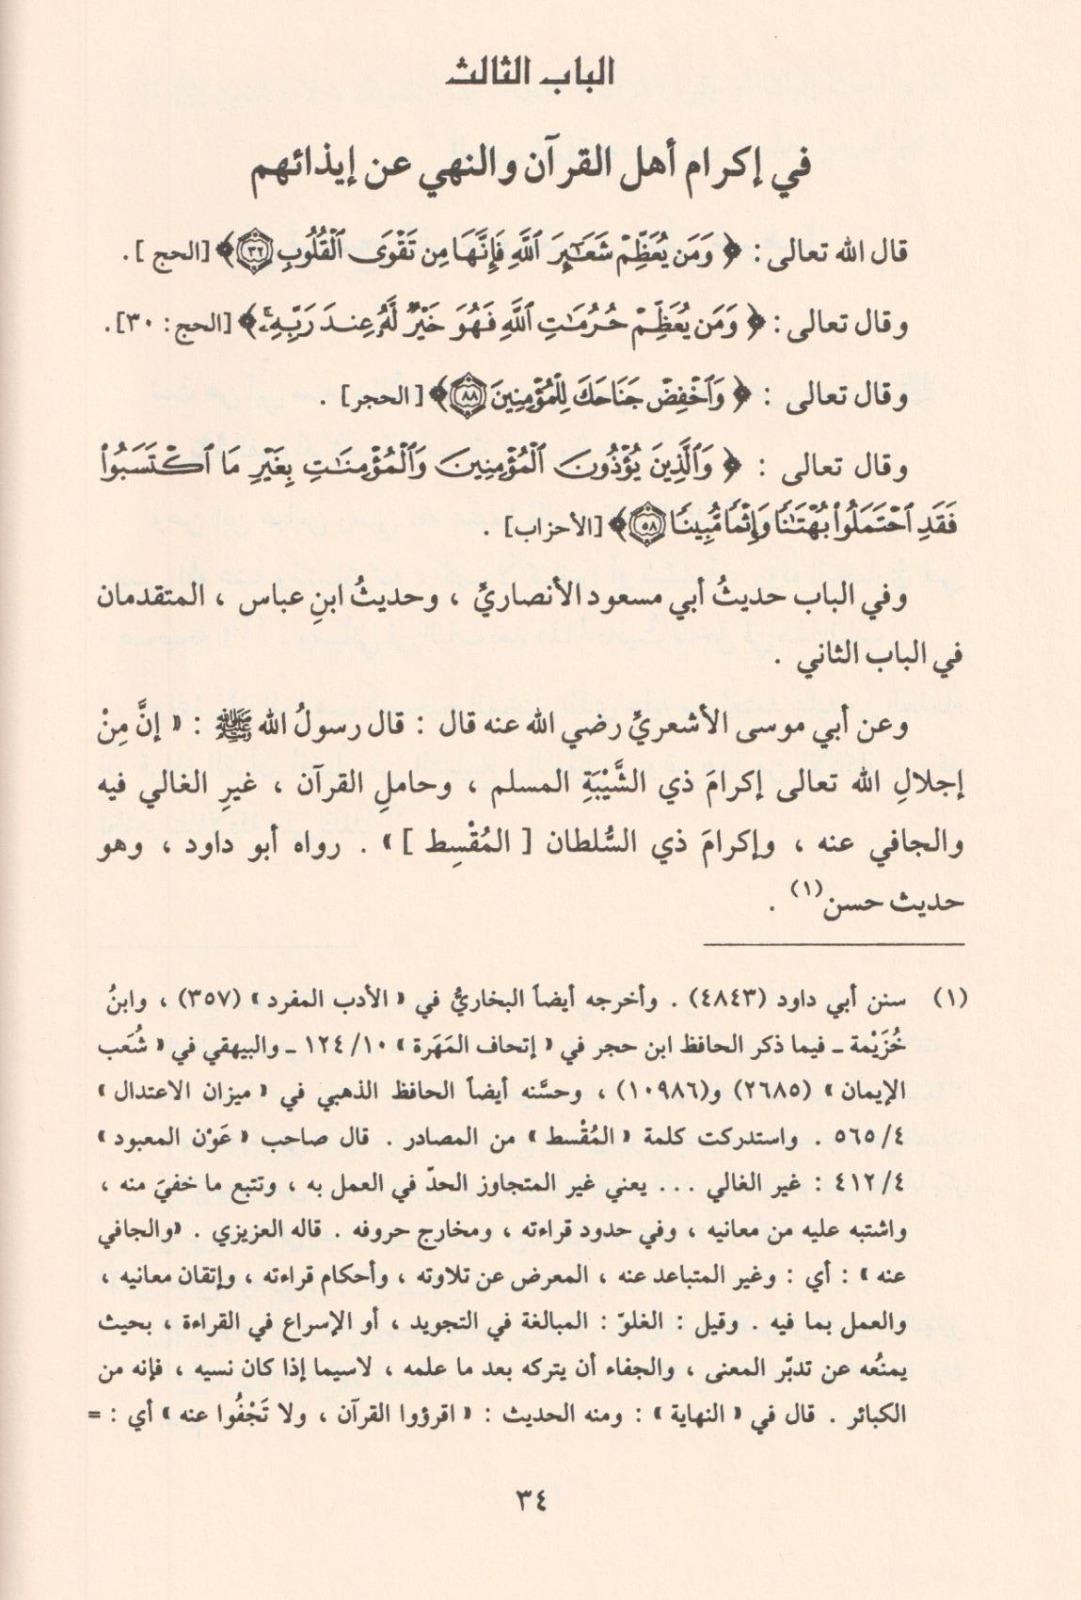 الباب الثالث
في إكرام أهل القرآن والنهي عن إيذائهم
قال الله تعالى : ﴿ وَمَن يُعَظِّمْ شَعَـٰٓئِرَ ٱللَّهِ فَإِنَّهَا مِن تَقْوَى ٱلْقُلُوبِ ٣٢ ﴾ [الحج ] .
وقال تعالى : ﴿ وَمَن يُعَظِّمْ حُرُمَـٰتِ ٱللَّهِ فَهُوَ خَيْرٌ لَّهُۥ عِندَ رَبِّهِۦ ﴾ [الحج : ٣٠] .
وقال تعالى : ﴿ وَٱخْفِضْ جَنَاحَكَ لِلْمُؤْمِنِينَ ٨٨ ﴾ [ الحجر] .
وقال تعالى : ﴿ وَٱلَّذِينَ يُؤْذُونَ ٱلْمُؤْمِنِينَ وَٱلْمُؤْمِنَـٰتِ بِغَيْرِ مَا ٱكْتَسَبُوا۟
فَقَدِ ٱحْتَمَلُوا۟ بُهْتَـٰنًا وَإِثْمًا مُّبِينًا ٥٨ ﴾ [الأحزاب] .
وفي الباب حديثُ أبي مسعود الأنصاريِّ ، وحديثُ ابنِ عباس ، المتقدمان
في الباب الثاني .
وعن أبي موسى الأشعريِّ رضي الله عنه قال : قال رسولُ الله ﷺ : « إنَّ مِنْ
إجلالِ الله تعالى إكرامَ ذي الشَّيْبَةِ المسلم ، وحاملِ القرآن ، غيرِ الغالي فيه
والجافي عنه ، وإكرامَ ذي السُّلطان [ المُقْسِط ] » . رواه أبو داود ، وهو
حديث حسن(١) .
(١) سنن أبي داود (٤٨٤٣) . وأخرجه أيضاً البخاريُّ في « الأدب المفرد » (٣٥٧) ، وابنُ
خُزَيْمة ـ فيما ذكر الحافظ ابن حجر في « إتحاف المَهَرة » ١٠/ ١٢٤ ـ والبيهقي في « شُعَب
الإيمان » (٢٦٨٥) و(١٠٩٨٦) ، وحسَّنه أيضاً الحافظ الذهبي في « ميزان الاعتدال »
٤/ ٥٦٥ . واستدركت كلمة « المُقْسط » من المصادر . قال صاحب « عَوْن المعبود »
٤/ ٤١٢ : غير الغالي ... يعني غير المتجاوز الحدّ في العمل به ، وتتبع ما خفيَ منه ،
واشتبه عليه من معانيه ، وفي حدود قراءته ، ومخارج حروفه . قاله العزيزي . «والجافي
عنه » : أي : وغير المتباعد عنه ، المعرض عن تلاوته ، وأحكام قراءته ، وإتقان معانيه ،
والعمل بما فيه . وقيل : الغلوّ : المبالغة في التجويد ، أو الإسراع في القراءة ، بحيث
يمنُعه عن تدبّر المعنى ، والجفاء أن يتركه بعد ما علمه ، لاسيما إذا كان نسيه ، فإنه من
الكبائر . قال في « النهاية » : ومنه الحديث : « اقرؤوا القرآن ، ولا تَجْفُوا عنه » أي : =
٣٤